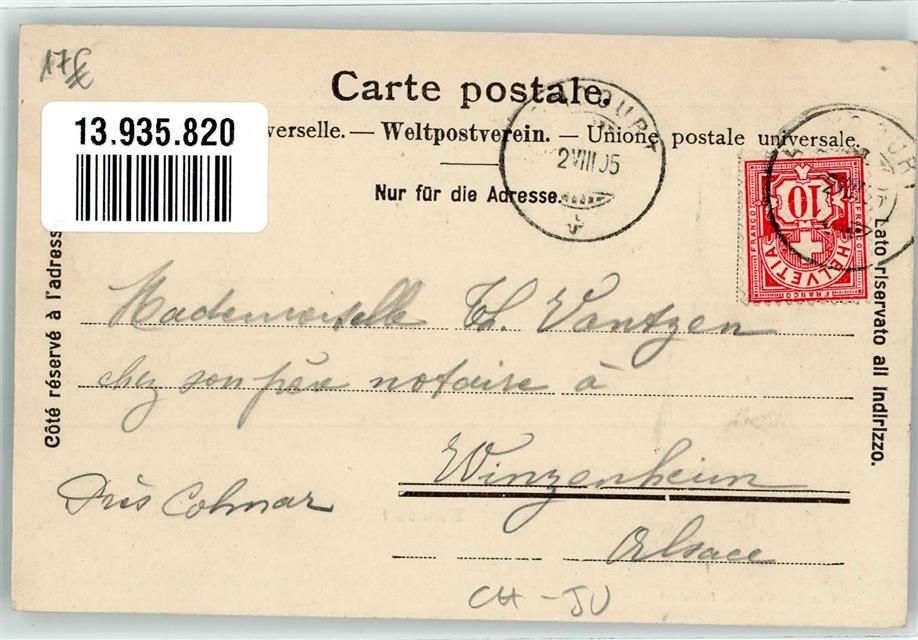 17£
Carte postale.
13.935.820
verselle. — Weltpostverein. — Unione postale universale.
2 VIII 05
Nur für die Adresse.
10
FRANCO
HELVETIA
FRANCO
FRANCO
Côté réservé à l'adresse
Lato riservato all indirizzo.
Mademoiselle Th. Vantzen
chez son père notaire à
Winzenheim
Près Colmar
Alsace
CH - JU